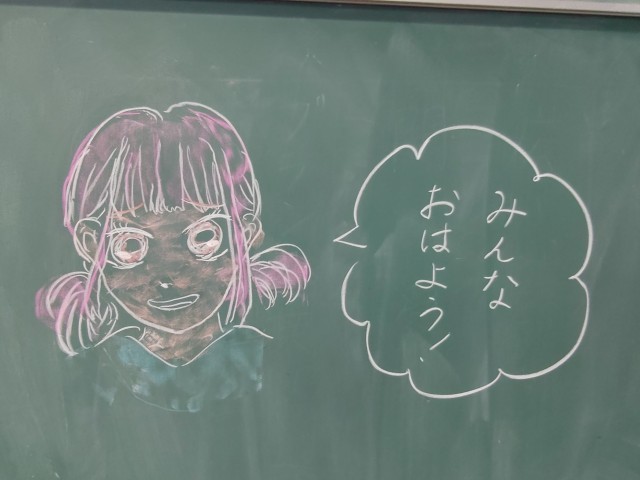 みんな
おはよう!